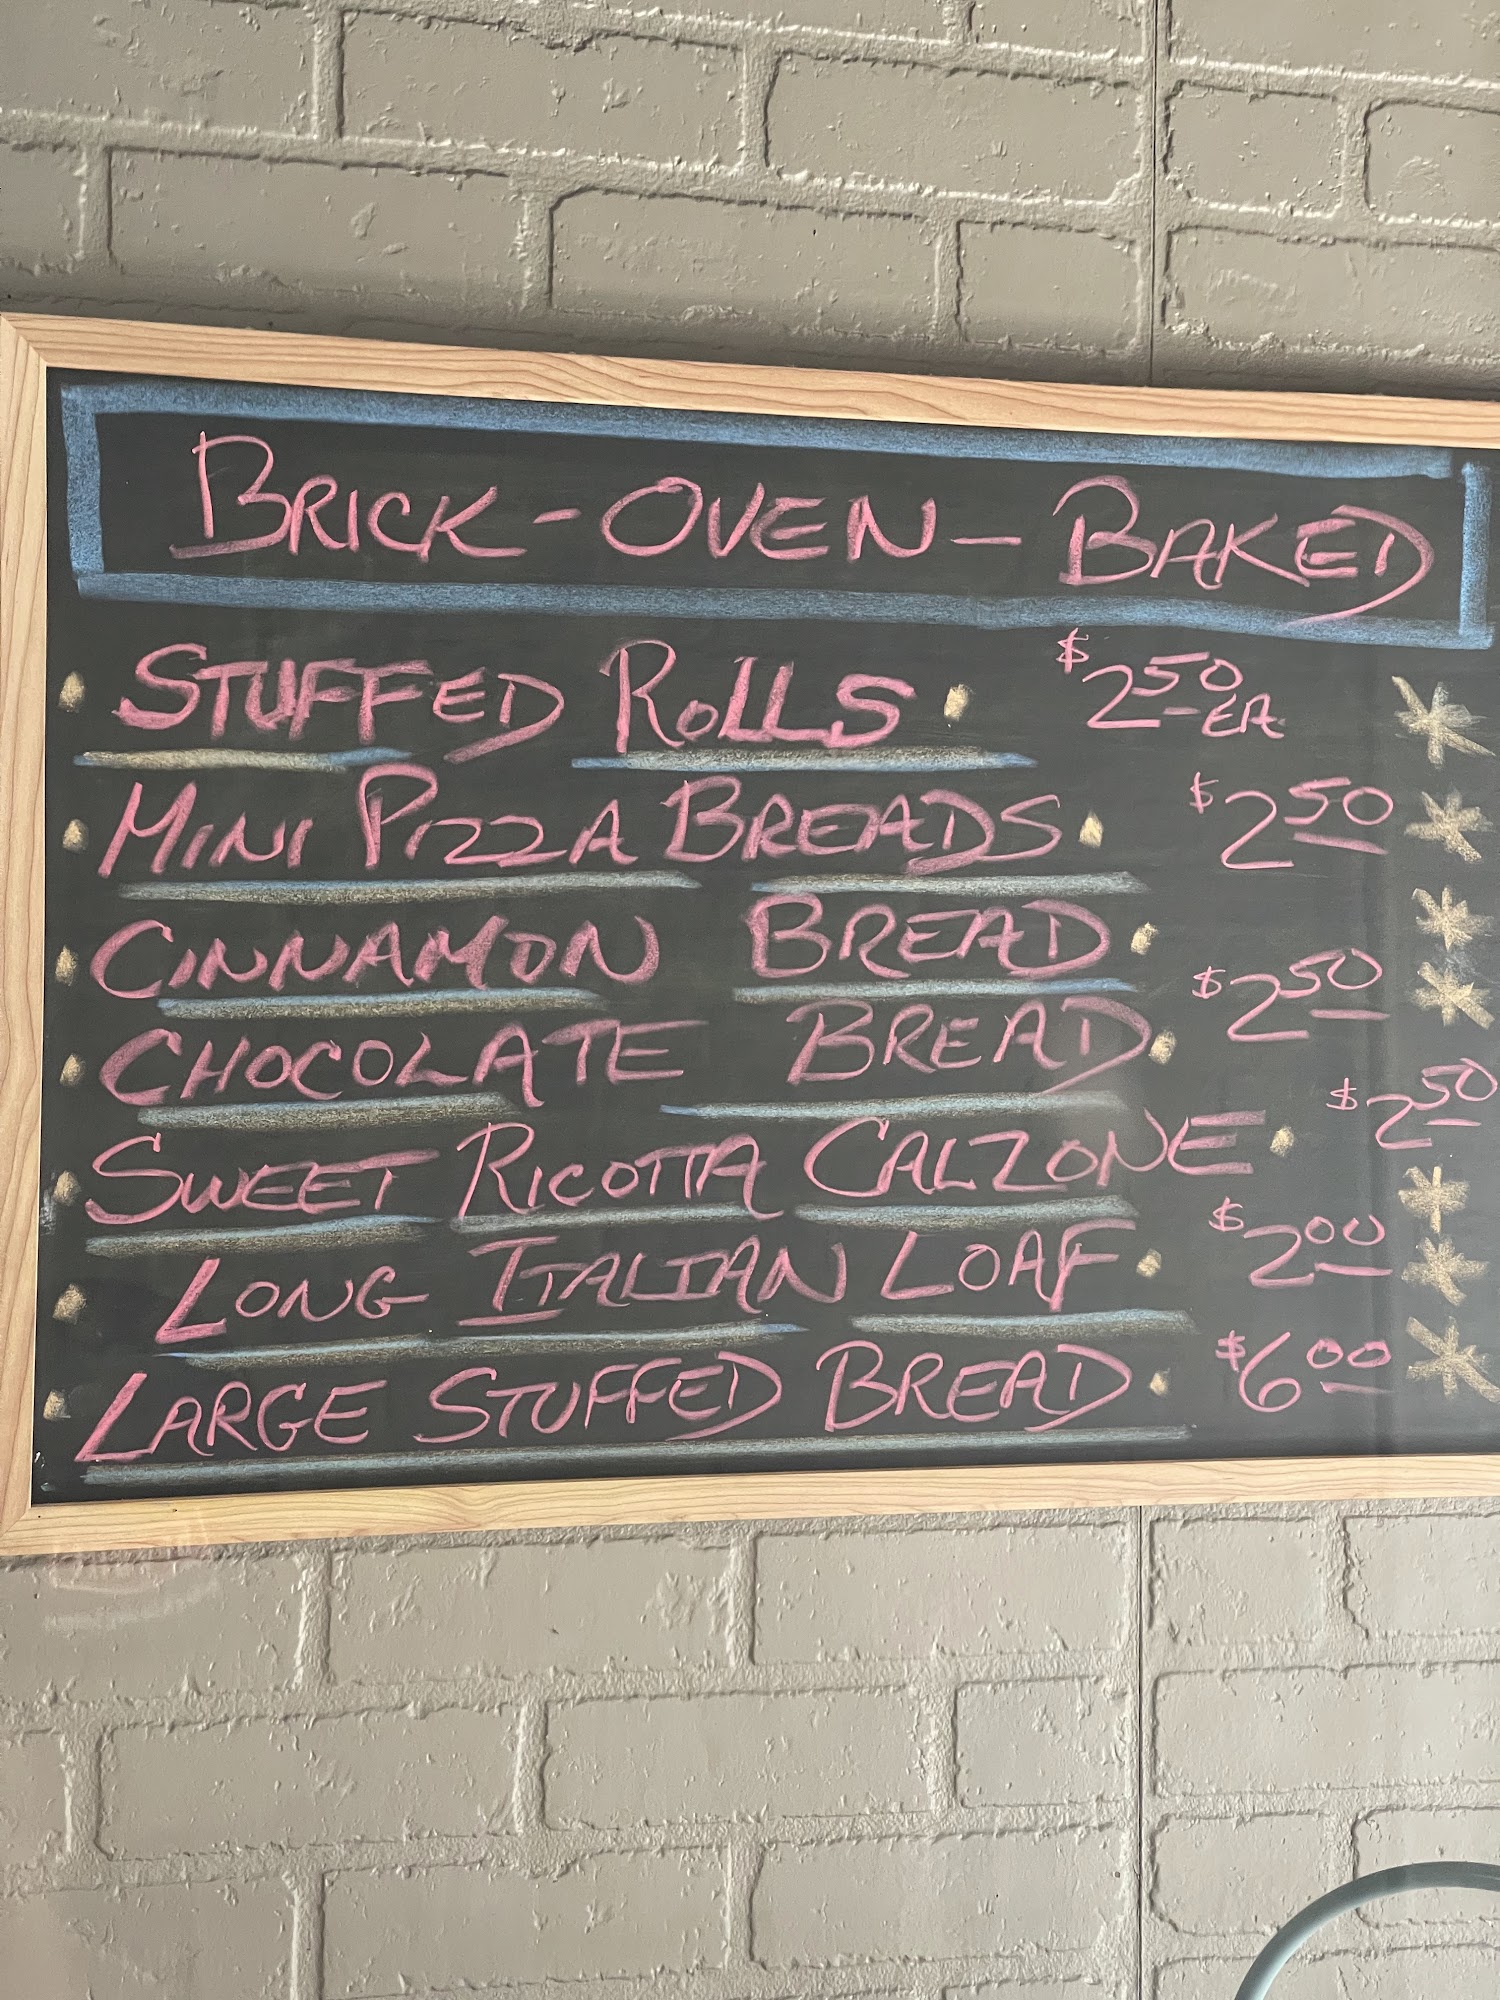 BRICK-OVEN-BAKED
• STUFFED ROLLS • $2.50 EA.
• MINI PIZZA BREADS • $2.50
• CINNAMON BREAD •
• CHOCOLATE BREAD • $2.50
• SWEET RICOTTA CALZONE • $2.50
• LONG ITALIAN LOAF • $2.00
• LARGE STUFFED BREAD • $6.00